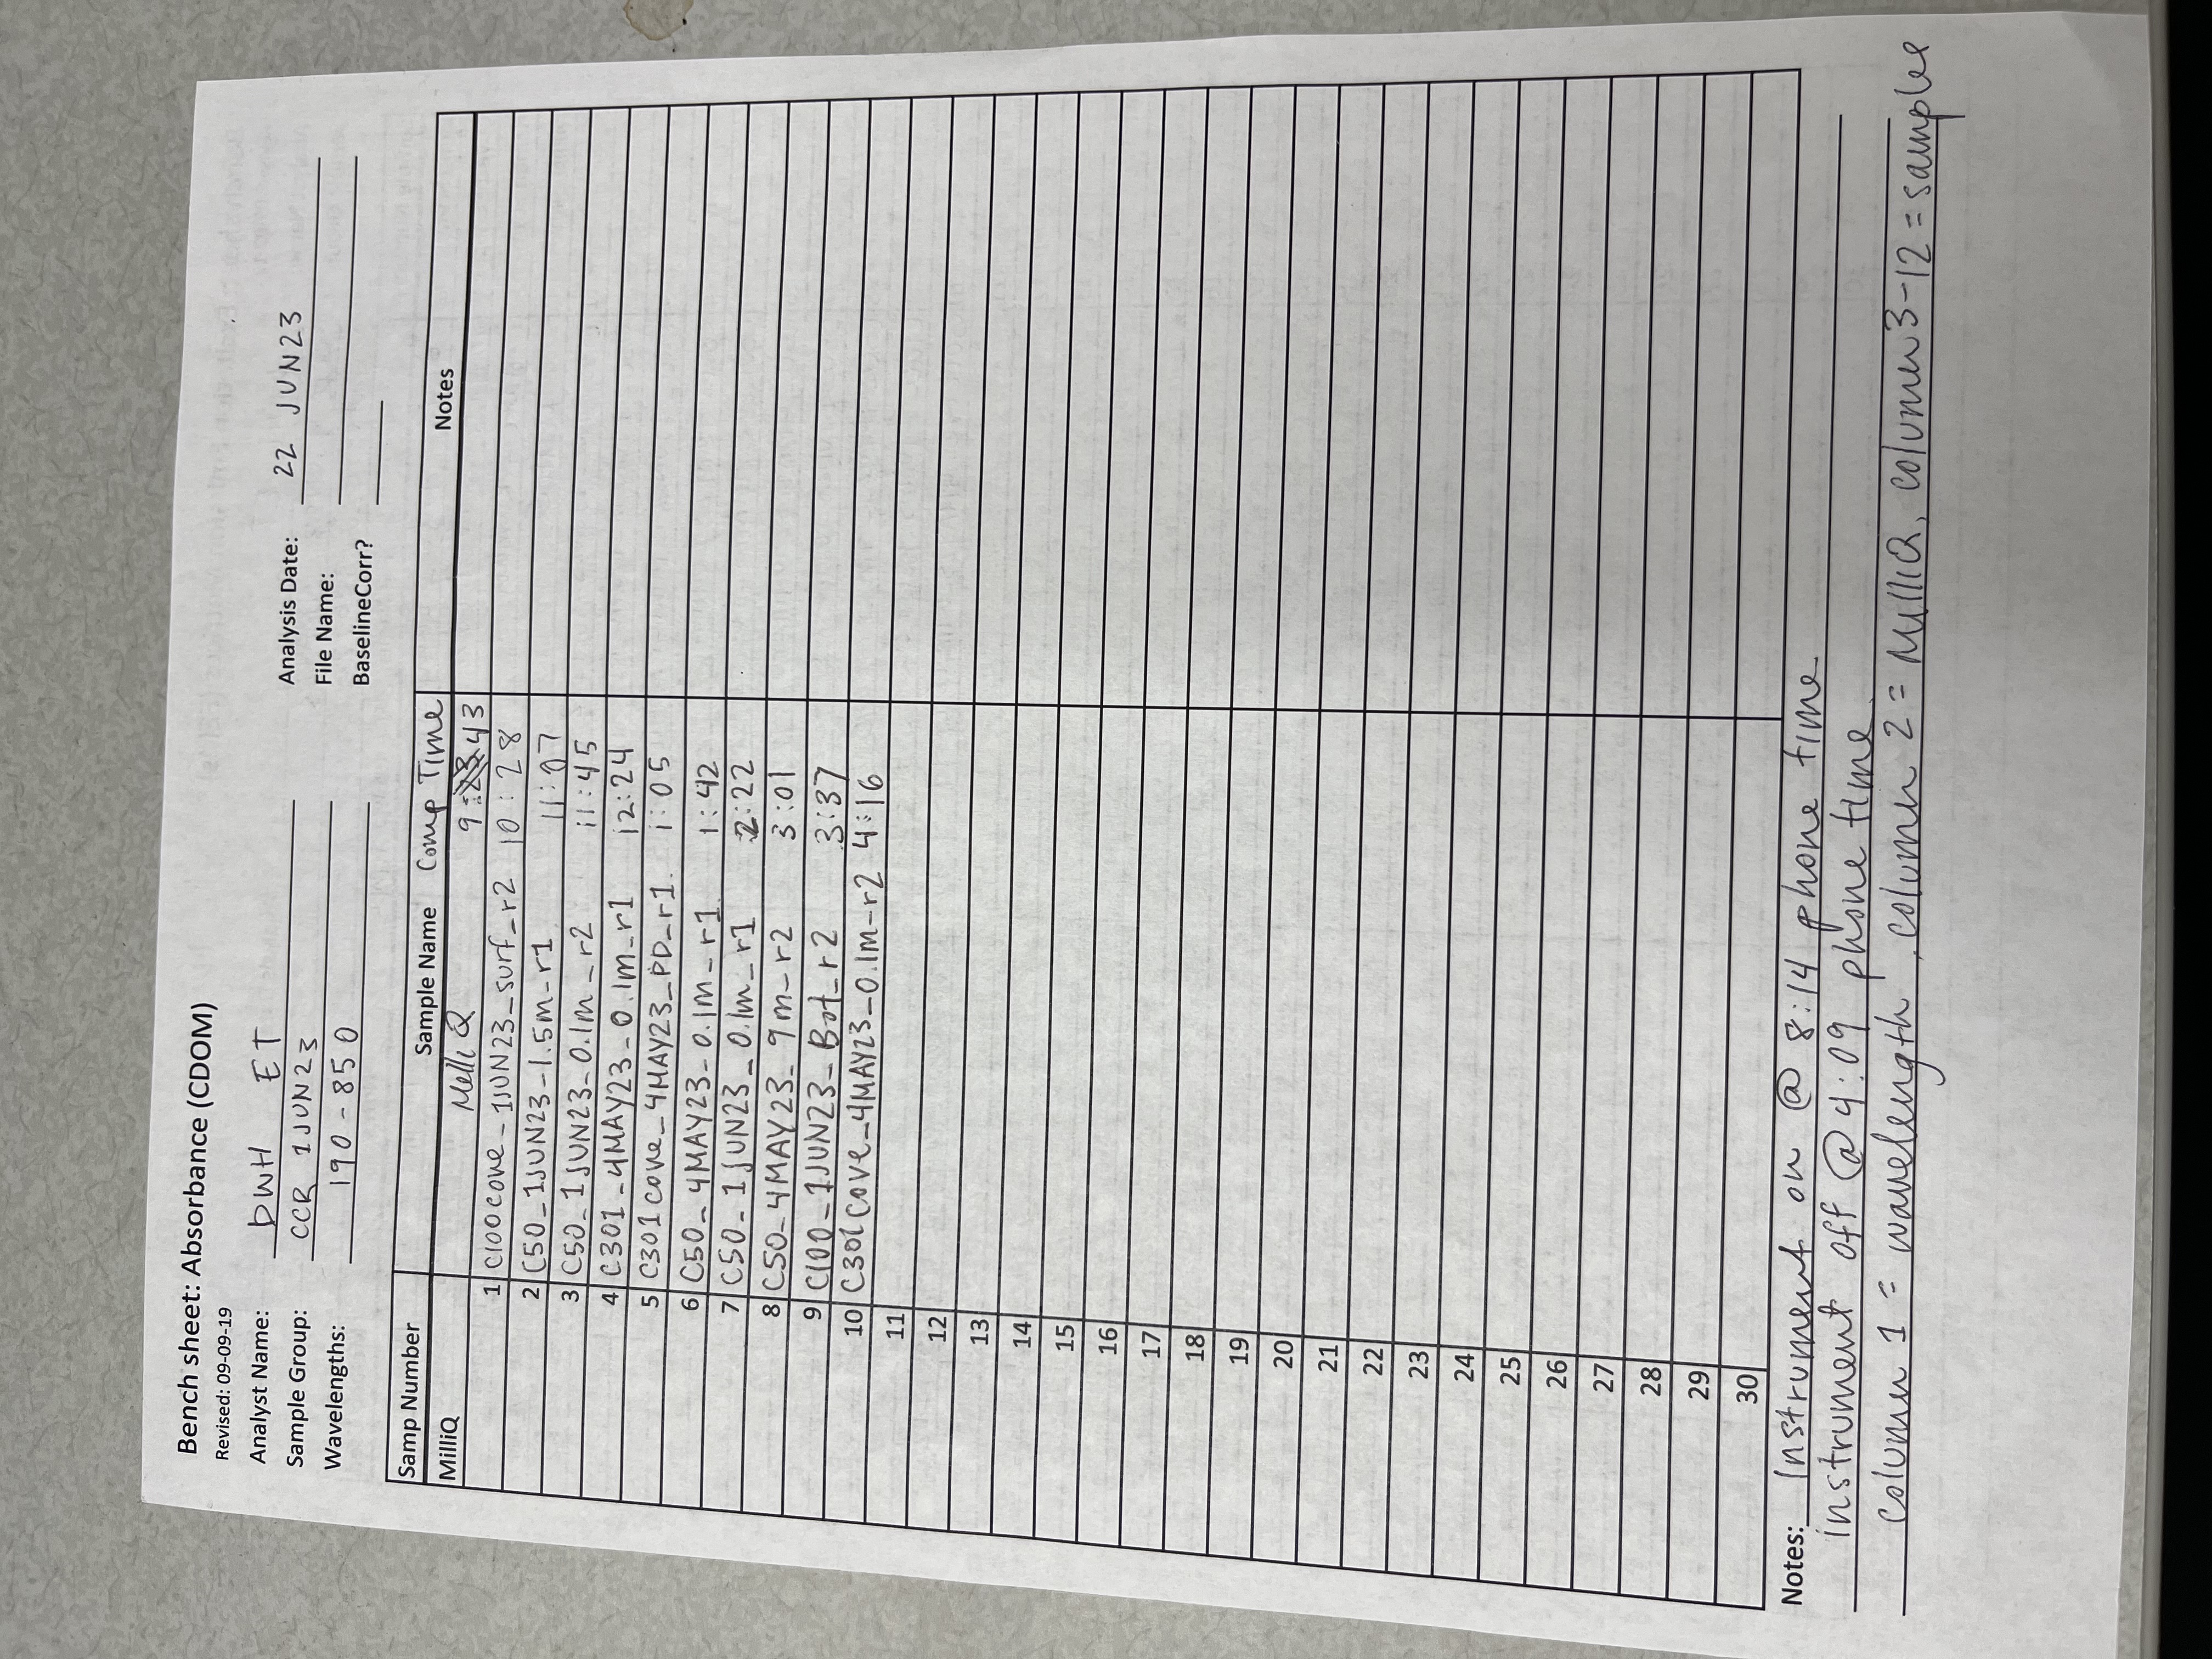 Bench sheet: Absorbance (CDOM)
Revised: 09-09-19
Analyst Name: DWH ET
Analysis Date: 22 JUN23
Sample Group: CCR 1JUN23
File Name:
Wavelengths: 190-850
BaselineCorr?
Samp Number Sample Name Comp Time Notes
MilliQ Milli Q 9:43
1 C100cove_1JUN23_surf_r2 10:28
2 C50_1JUN23-1.5m-r1 11:07
3 C50_1JUN23_0.1m_r2 11:45
4 C301_4MAY23_0.1m_r1 12:24
5 C301cove_4MAY23_PD_r1. 1:05
6 C50_4MAY23-0.1m_r1 1:42
7 C50_1JUN23_0.1m_r1 2:22
8 C50_4MAY23_9m_r2 3:01
9 C100_1JUN23_Bot_r2 3:37
10 C301cove_4MAY23_0.1m-r2 4:16
11
12
13
14
15
16
17
18
19
20
21
22
23
24
25
26
27
28
29
30
Notes: Instrument on @ 8:14 phone time
instrument off @ 4:09 phone time.
column 1 = wavelength, column 2 = MilliQ, column 3-12 = samples